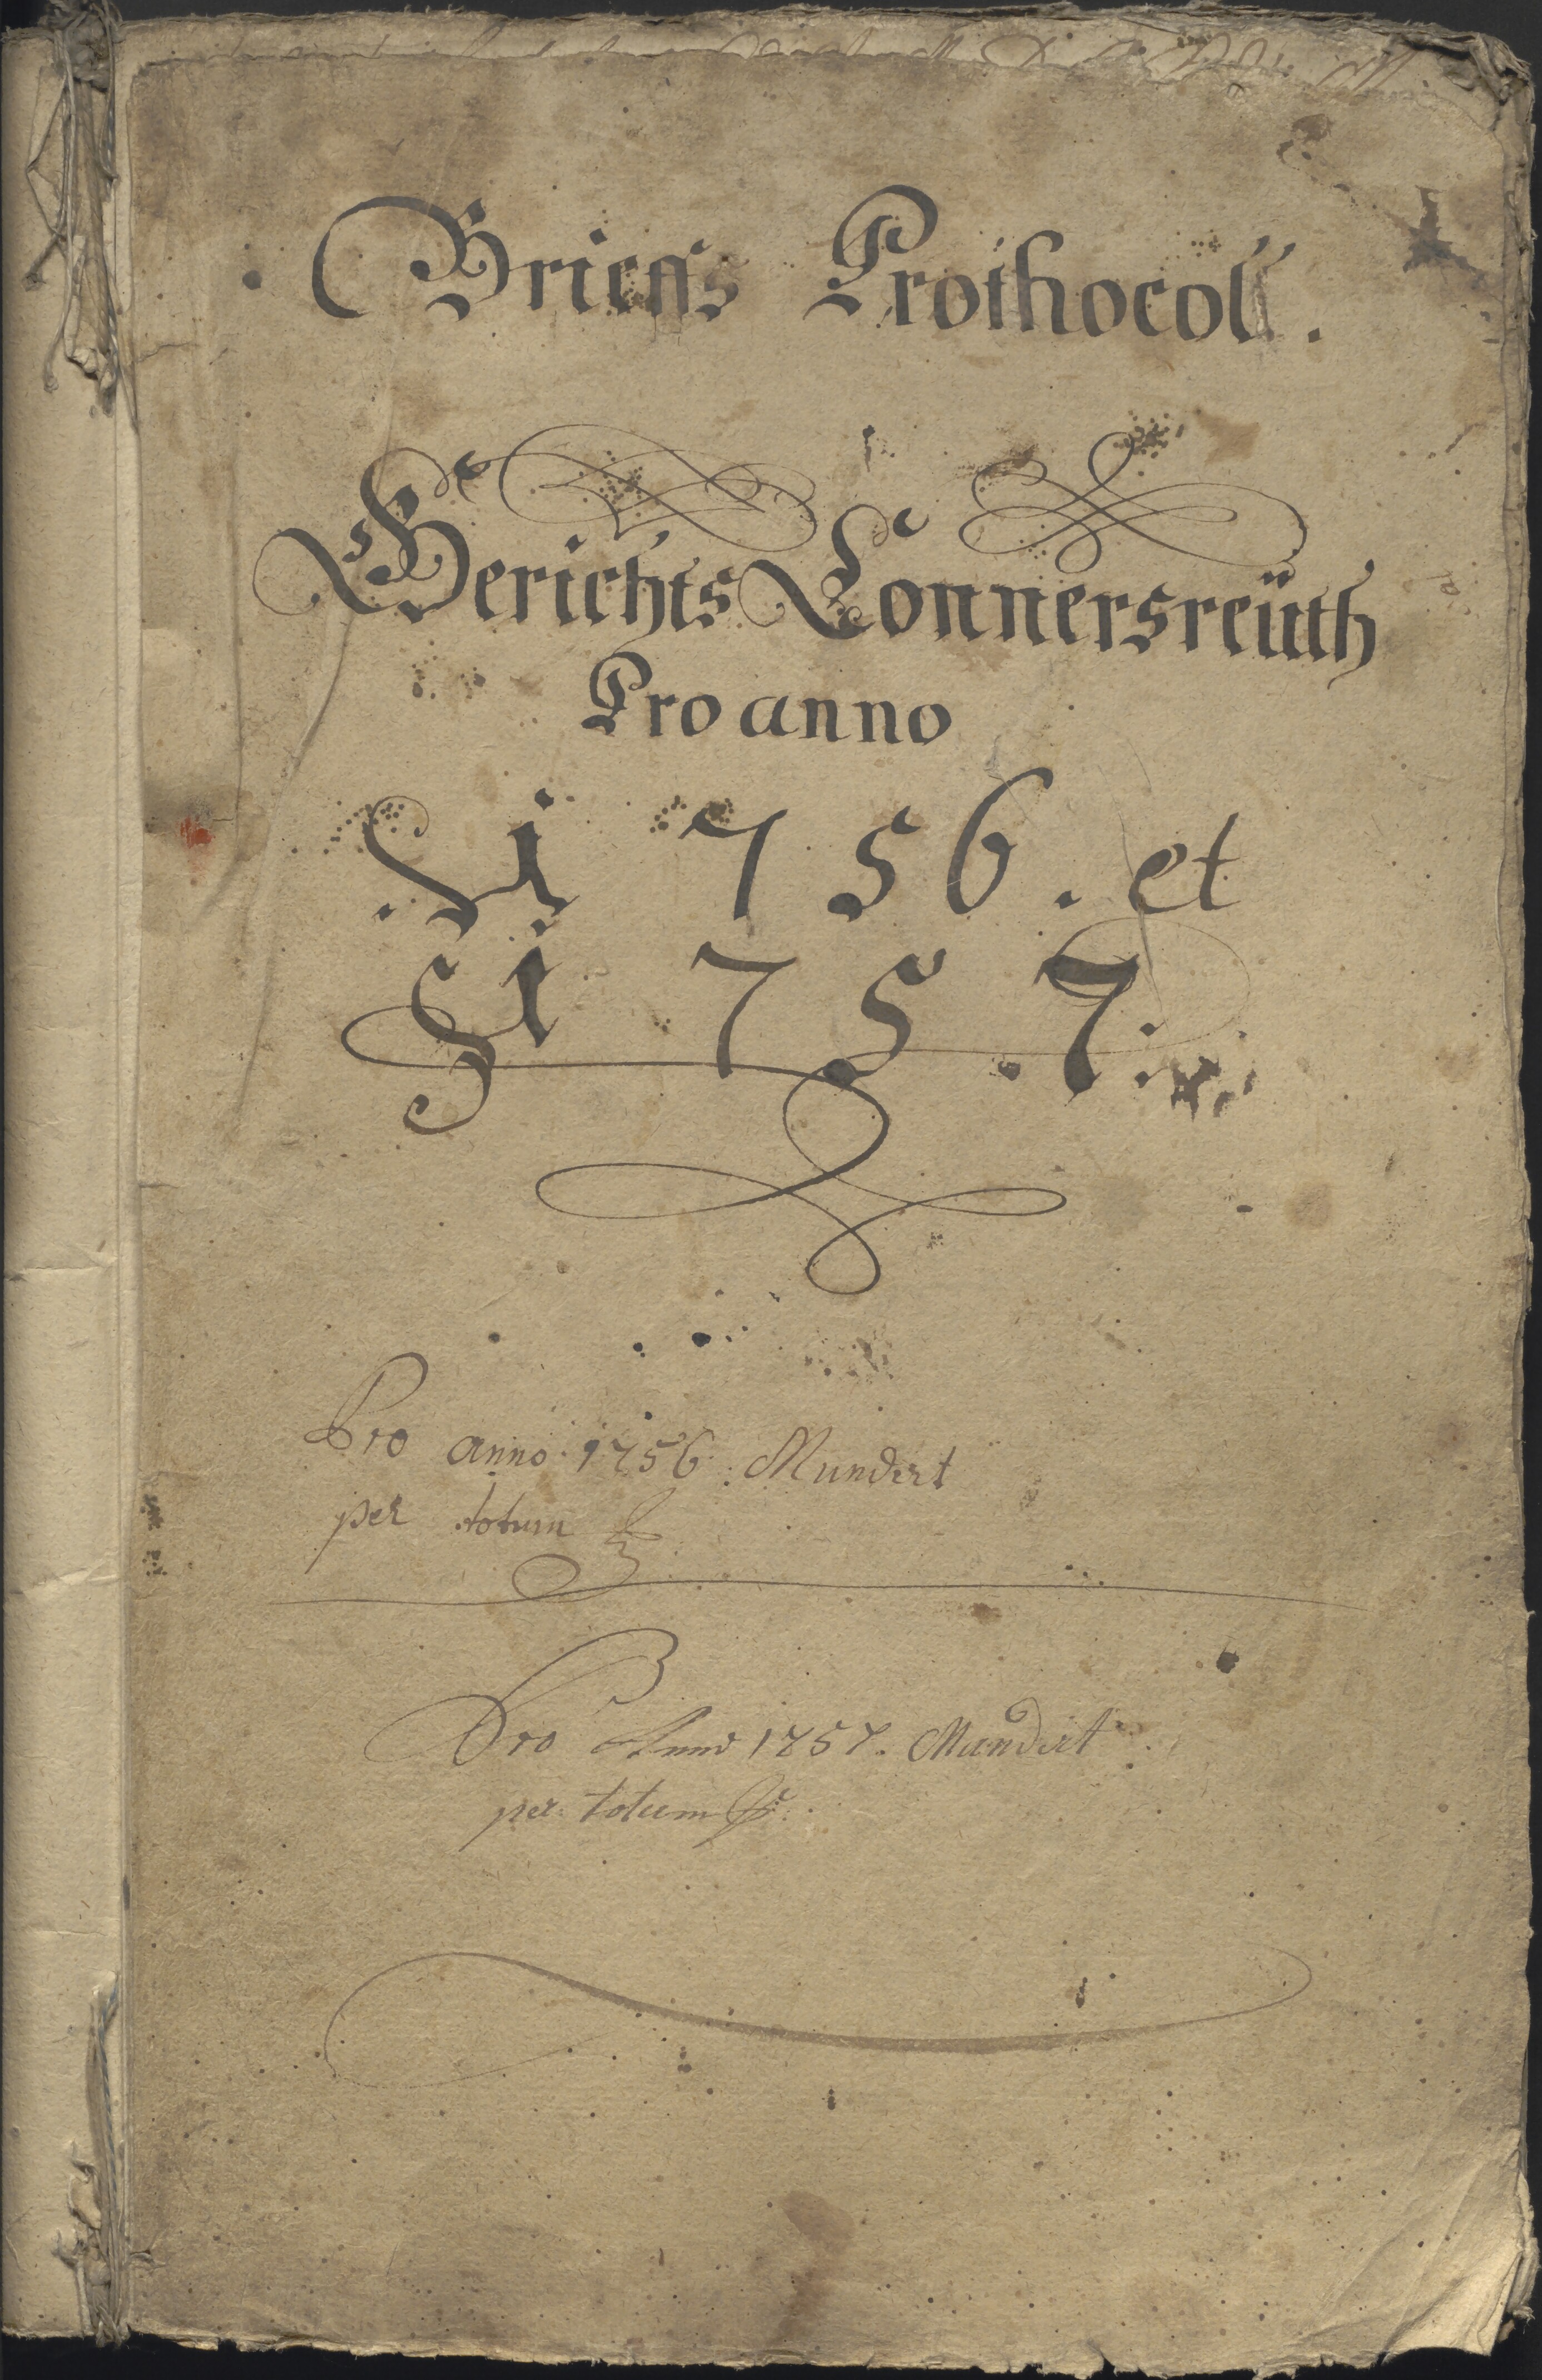 Brieffs Prothocoll.
Gerichts Connersreüth
Pro anno
1756. et
1757.
Pro anno 1756. Mundirt
per totum
Pro Anno 1757. Mundirt
per totum